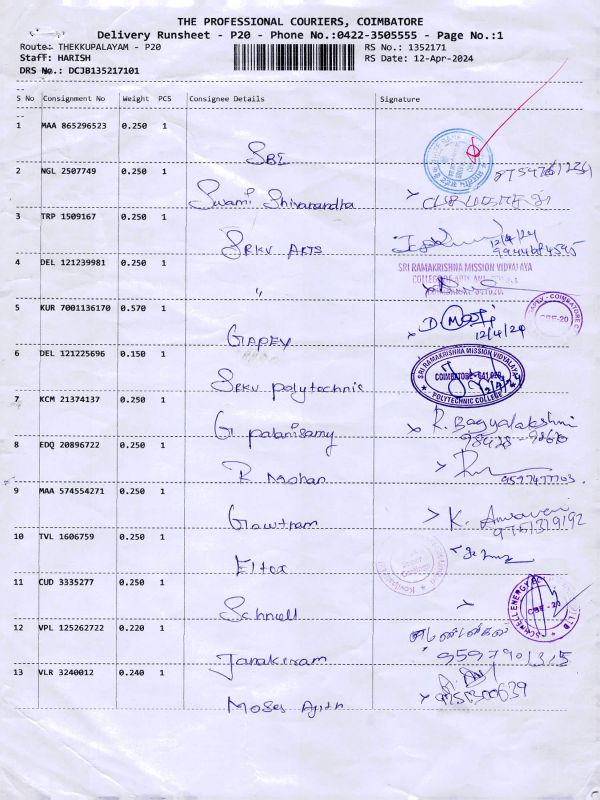 THE PROFESSIONAL COURIERS, COIMBATORE
Delivery Runsheet - P20 - Phone No.:0422-3505555 - Page No.:1
Route: THEKKUPALAYAM - P20 RS No.: 1352171
Staff: HARISH RS Date: 12-Apr-2024
DRS No.: DCJB135217101
S No Consignment No Weight PCS Consignee Details Signature
1 MAA 865296523 0.250 1
SBI
2 NGL 2507749 0.250 1
Swami Shivanandha
3 TRP 1509167 0.250 1
SRKV ARTS 12/4/24
9944684595
4 DEL 121239981 0.250 1 SRI RAMAKRISHNA MISSION VIDYALAYA
"
5 KUR 7001136170 0.570 1 CBE-20
GAPEY 12/4/24
6 DEL 121225696 0.150 1 SRI RAMAKRISHNA MISSION VIDYALAYA
COIMBATORE-641 020
POLYTECHNIC COLLEGE
SRKV polytechnic
7 KCM 21374137 0.250 1 R. Bagyalakshmi
G. palanisamy
8 EDQ 20896722 0.250 1
R Mohan
9 MAA 574554271 0.250 1 K.
Gowtham 9751319192
10 TVL 1606759 0.250 1
Eltex
11 CUD 3335277 0.250 1 CBE-20
Schnell
12 VPL 125262722 0.220 1
Janakiram 9597901315
13 VLR 3240012 0.240 1
Moses Ajith 9751300639